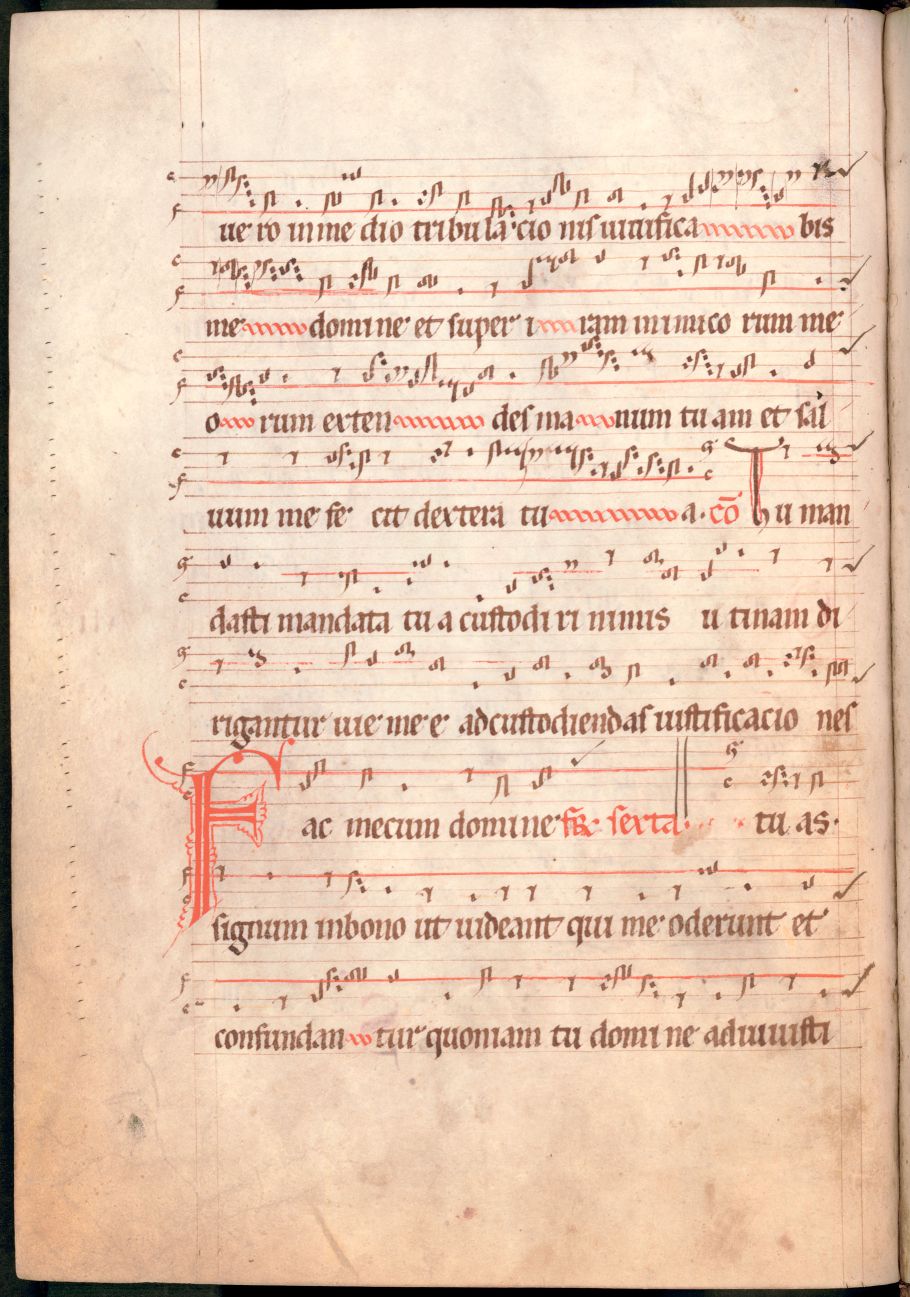 uero inmedio tribulacionis uiuifica bis
me domine et super iram inimicorum me
orum extendes manum tuam et sal
uum me fecit dextera tua. cō Tu man
dasti mandata tua custodiri nimis utinam di
rigantur uie mee adcustodiendas iustificacio nes
Fac mecum domine sexta tuas.
signum inbono ut uideant qui me oderunt et
confundantur quoniam tu domine adiuuisti